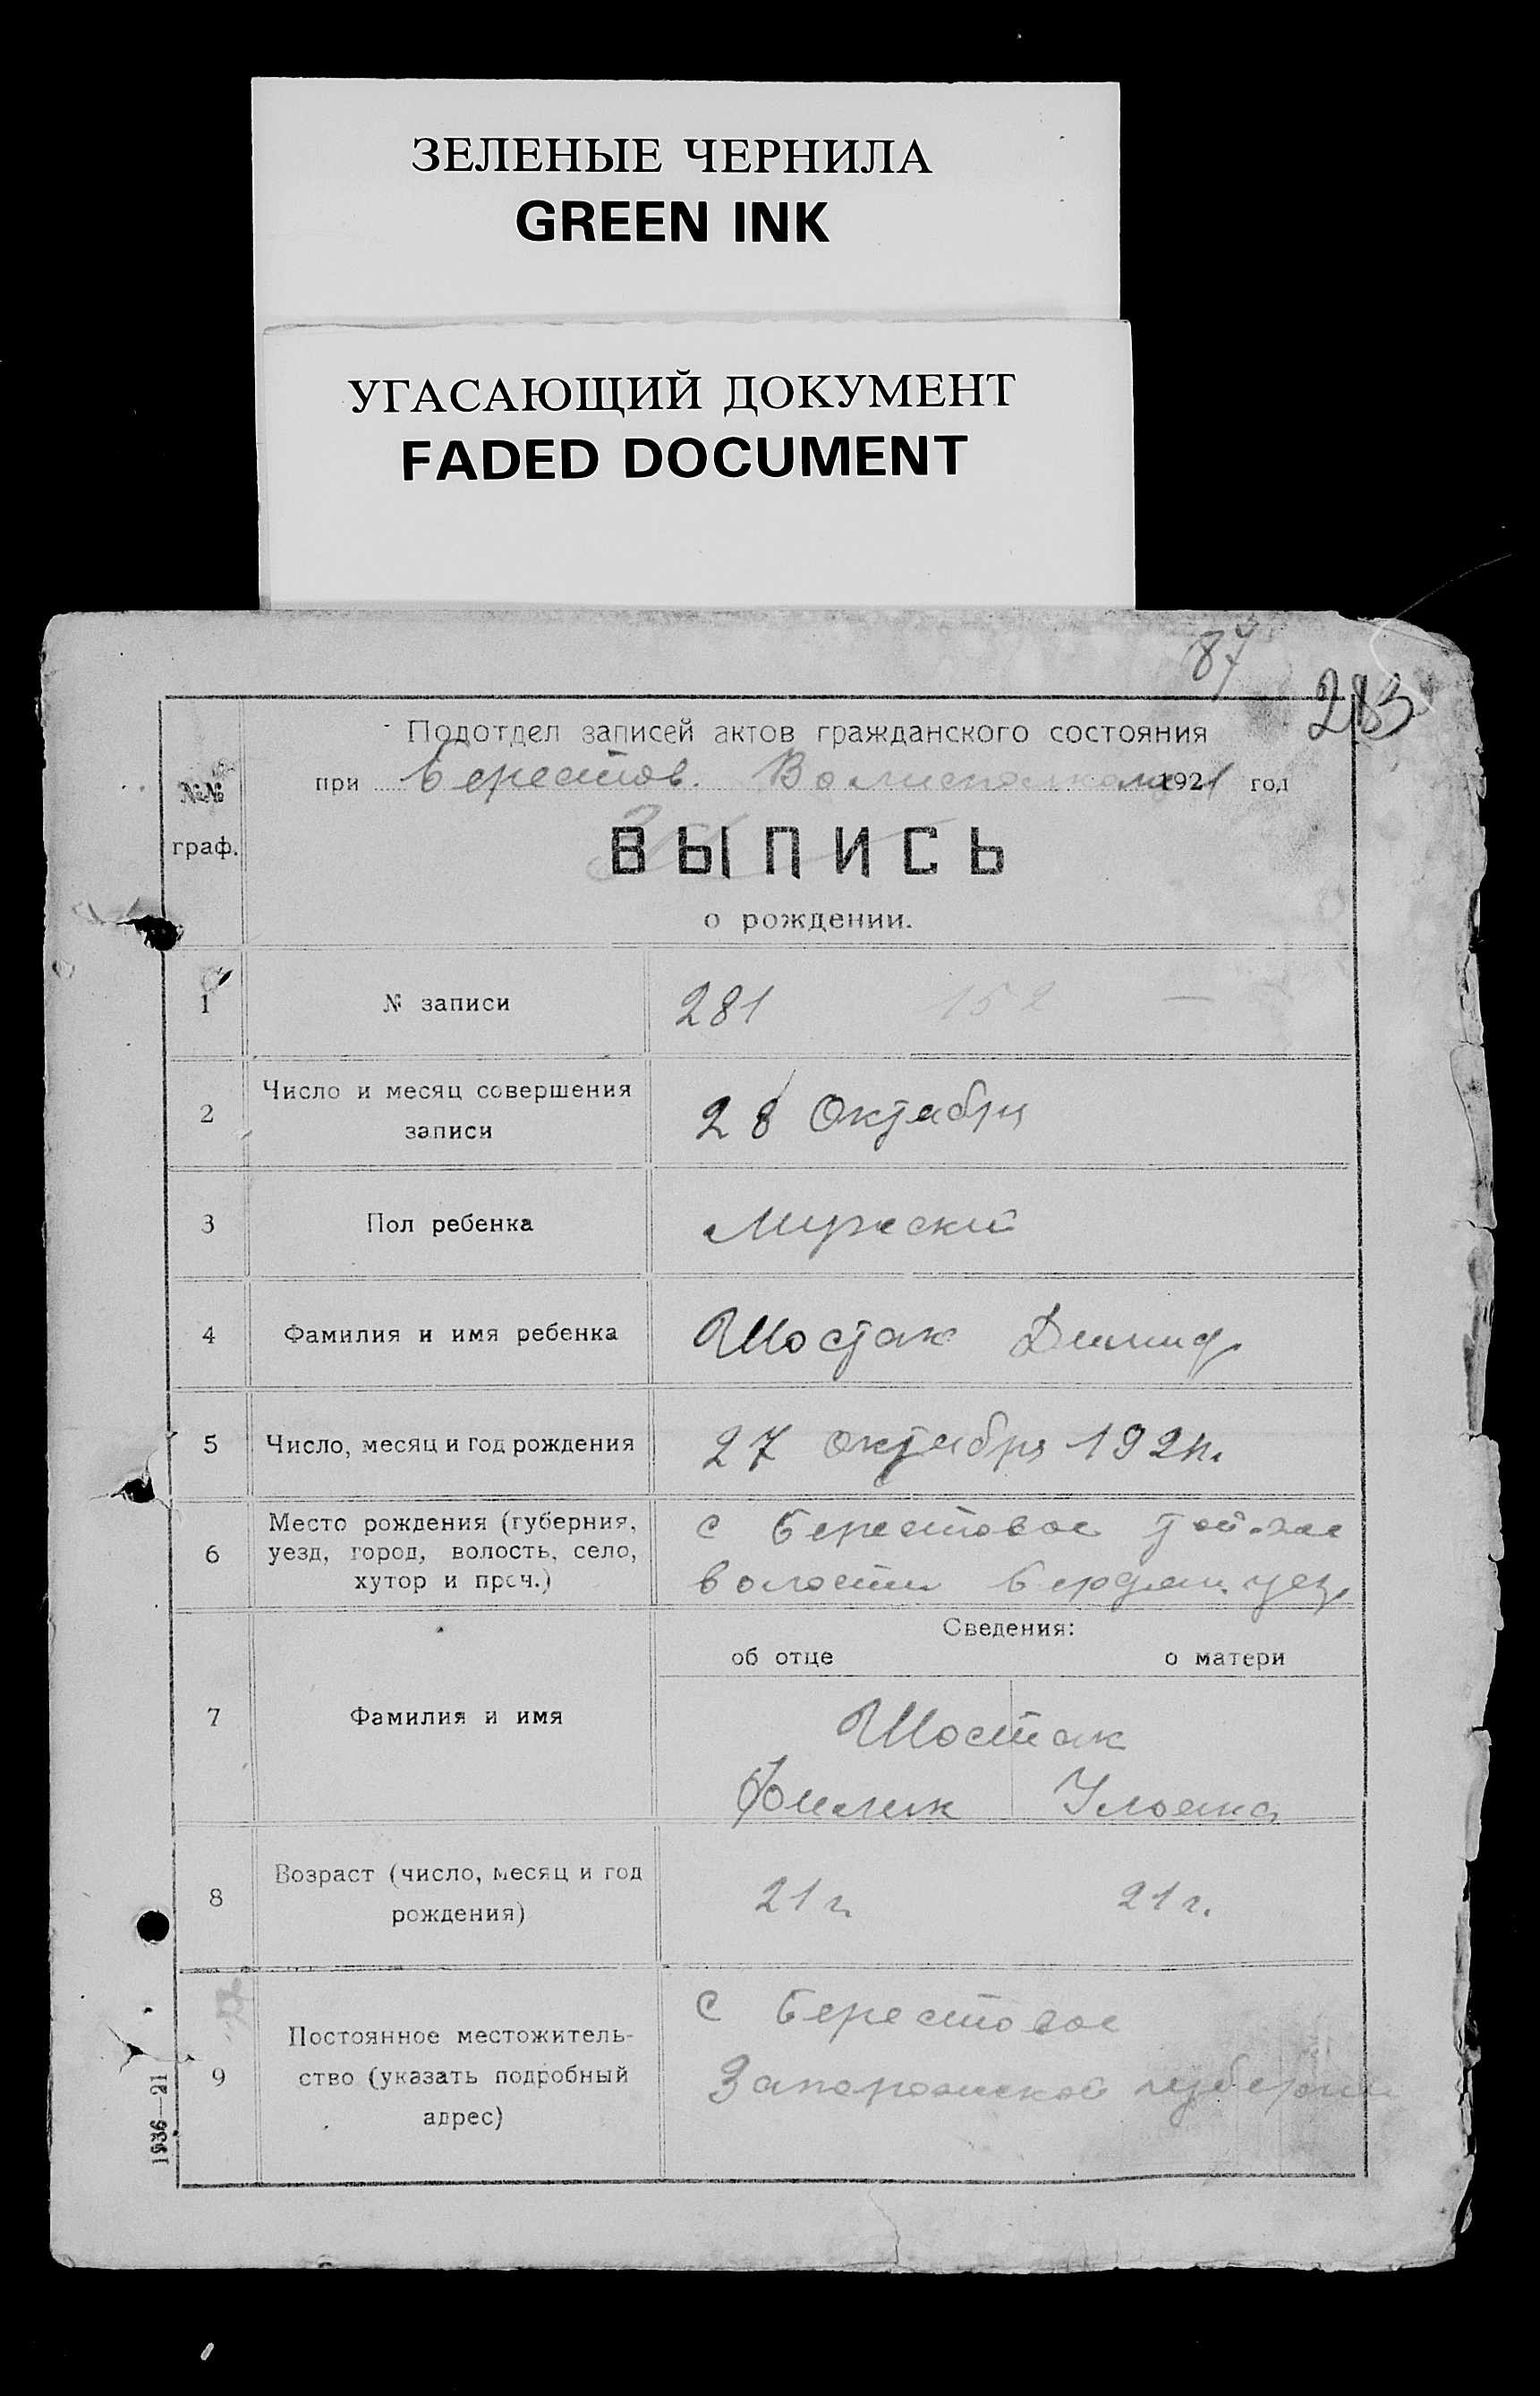 ЗЕЛЕНЫЕ ЧЕРНИЛА
GREEN INK
УГАСАЮЩИЙ ДОКУМЕНТ
FADED DOCUMENT
87
283
Подотдел записей актов гражданского состояния
при Берестов. Волисполкоме 1921 год
№№
граф.
ВЫПИСЬ
о рождении.
1 № записи 281 152 —
2 Число и месяц совершения
записи
28 Октября
3 Пол ребенка Мужеский
4 Фамилия и имя ребенка Шостак Демид
5 Число, месяц и год рождения 27 октября 1921г.
6 Место рождения (губерния,
уезд, город, волость, село,
хутор и проч.)
с Берестовое той-же
волости Бердян. уез.
Сведения:
об отце о матери
7 Фамилия и имя
Шостак
Фомик Ульяна
8 Возраст (число, месяц и год
рождения)
21 г. 21 г.
9 Постоянное местожитель-
ство (указать подробный
адрес)
с Берестовое
Запорожской губернии
1936—21